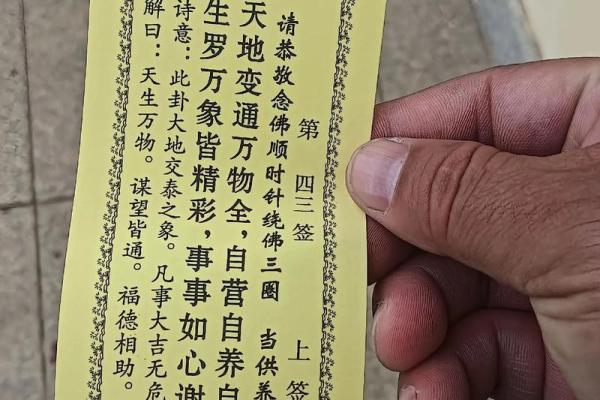 第四三签 上签
请恭敬念佛顺时针绕佛三圈 当供养
天地变通万物全，自营自养自
生罗万象皆精彩，事事如心谢
诗意：此卦大地交泰之象。凡事大吉无危
解曰：天生万物。谋望皆通。福德相助。